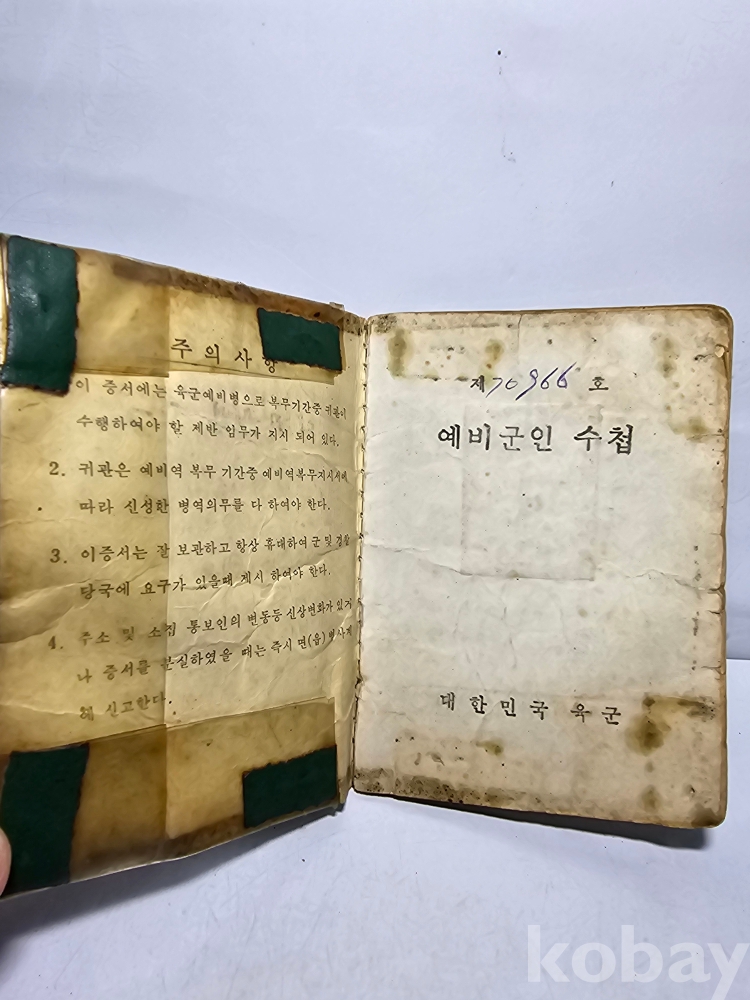 주의사항
이 증서에는 육군예비병으로 복무기간중 귀관이
수행하여야 할 제반 임무가 지시 되어 있다.
2. 귀관은 예비역 복무 기간중 예비역복무지시서에
따라 신성한 병역의무를 다 하여야 한다.
3. 이증서는 잘 보관하고 항상 휴대하여 군 및 경찰
당국에 요구가 있을때 제시 하여야 한다.
4. 주소 및 소집 통보인의 변동등 신상변화가 있거
나 증서를 분실하였을 때는 즉시 면(읍)
신고한다.
제 70966 호
예비군인 수첩
대한민국 육군
kobay